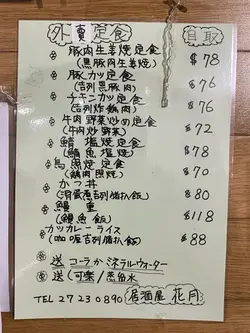 外賣定食 自取
☆ 豚肉生姜焼定食
(黒豚肉生姜焼) $78
☆ 豚カツ定食 $76
(吉列黒豚肉)
☆ チキンカツ定食 $76
(吉列炸鶏肉)
☆ 牛肉野菜炒め定食 $72
(牛肉炒野菜)
☆ 鯖塩焼定食 $78
(鯖魚塩焼)
☆ 鳥照焼定食 $70
(鶏肉照焼)
☆ かつ丼 $80
(滑蛋煮吉列豬扒飯)
☆ 鰻重 $118
(鰻魚飯)
☆ カツカレーライス $88
(咖喱吉列豬扒飯)
☆ 送コーラかミネラルウォーター
☆ 送(可樂)蒸餾水
TEL 27230890 居酒屋 花月